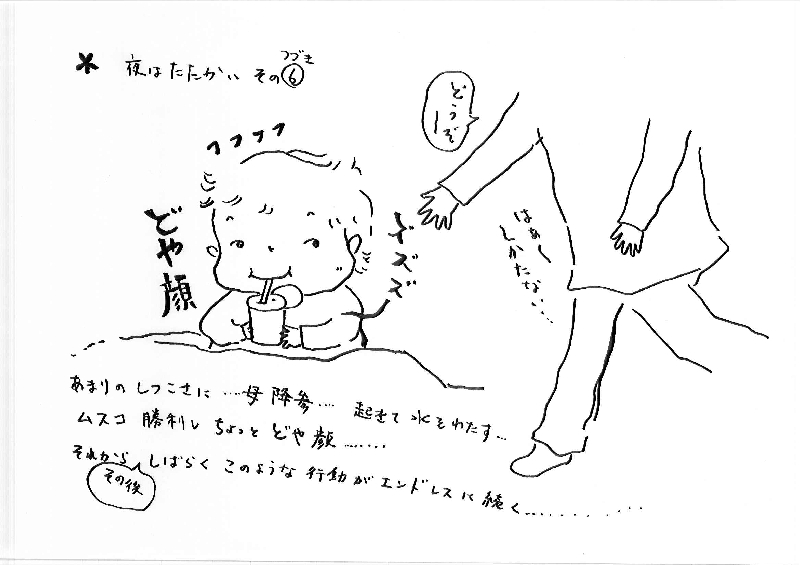 * 夜はたたかい その⑥
つづき
どうぞー
はぁ〜
しかたない…
どや顔
ズズズ
あまりの しつこさに ……母 降参…… 起きて 水をわたす…
ムスコ 勝利し ちょっと どや顔………
それから しばらく このような 行動が エンドレスに 続く……………
その後